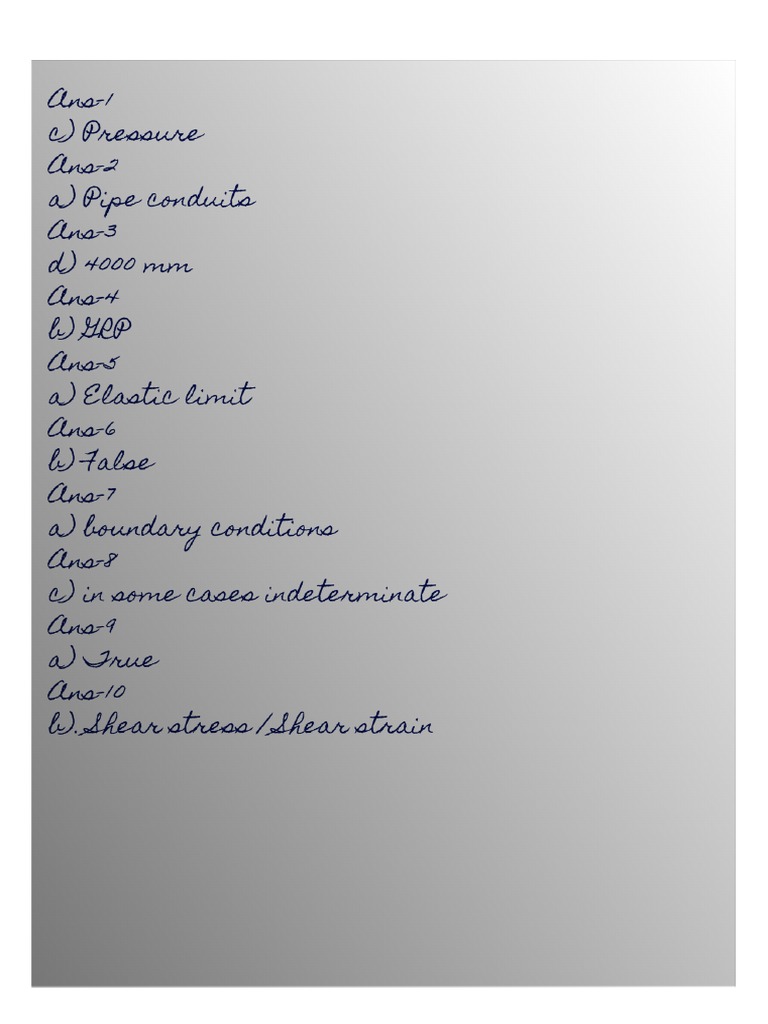 Ans-1
c) Pressure
Ans-2
a) Pipe conduits
Ans-3
d) 4000 mm
Ans-4
b) GRP
Ans-5
a) Elastic limit
Ans-6
b) False
Ans-7
a) boundary conditions
Ans-8
c) in some cases indeterminate
Ans-9
a) True
Ans-10
b). Shear stress / Shear strain